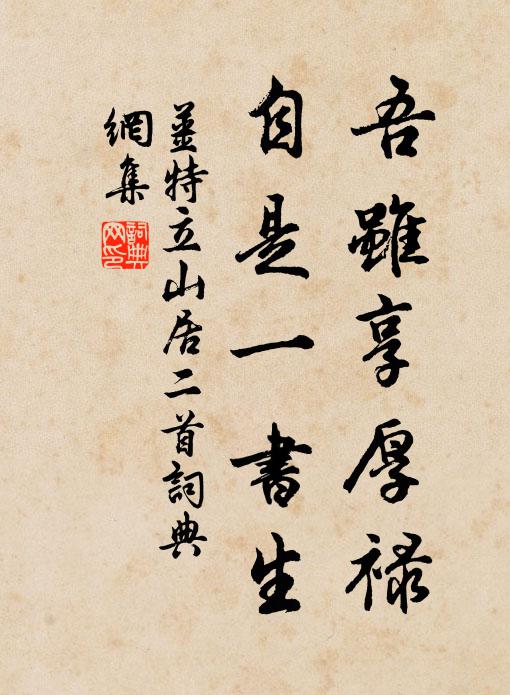 吾雖享厚祿
自是一書生
薑特立山居二首詞典
網集
詞典
网印